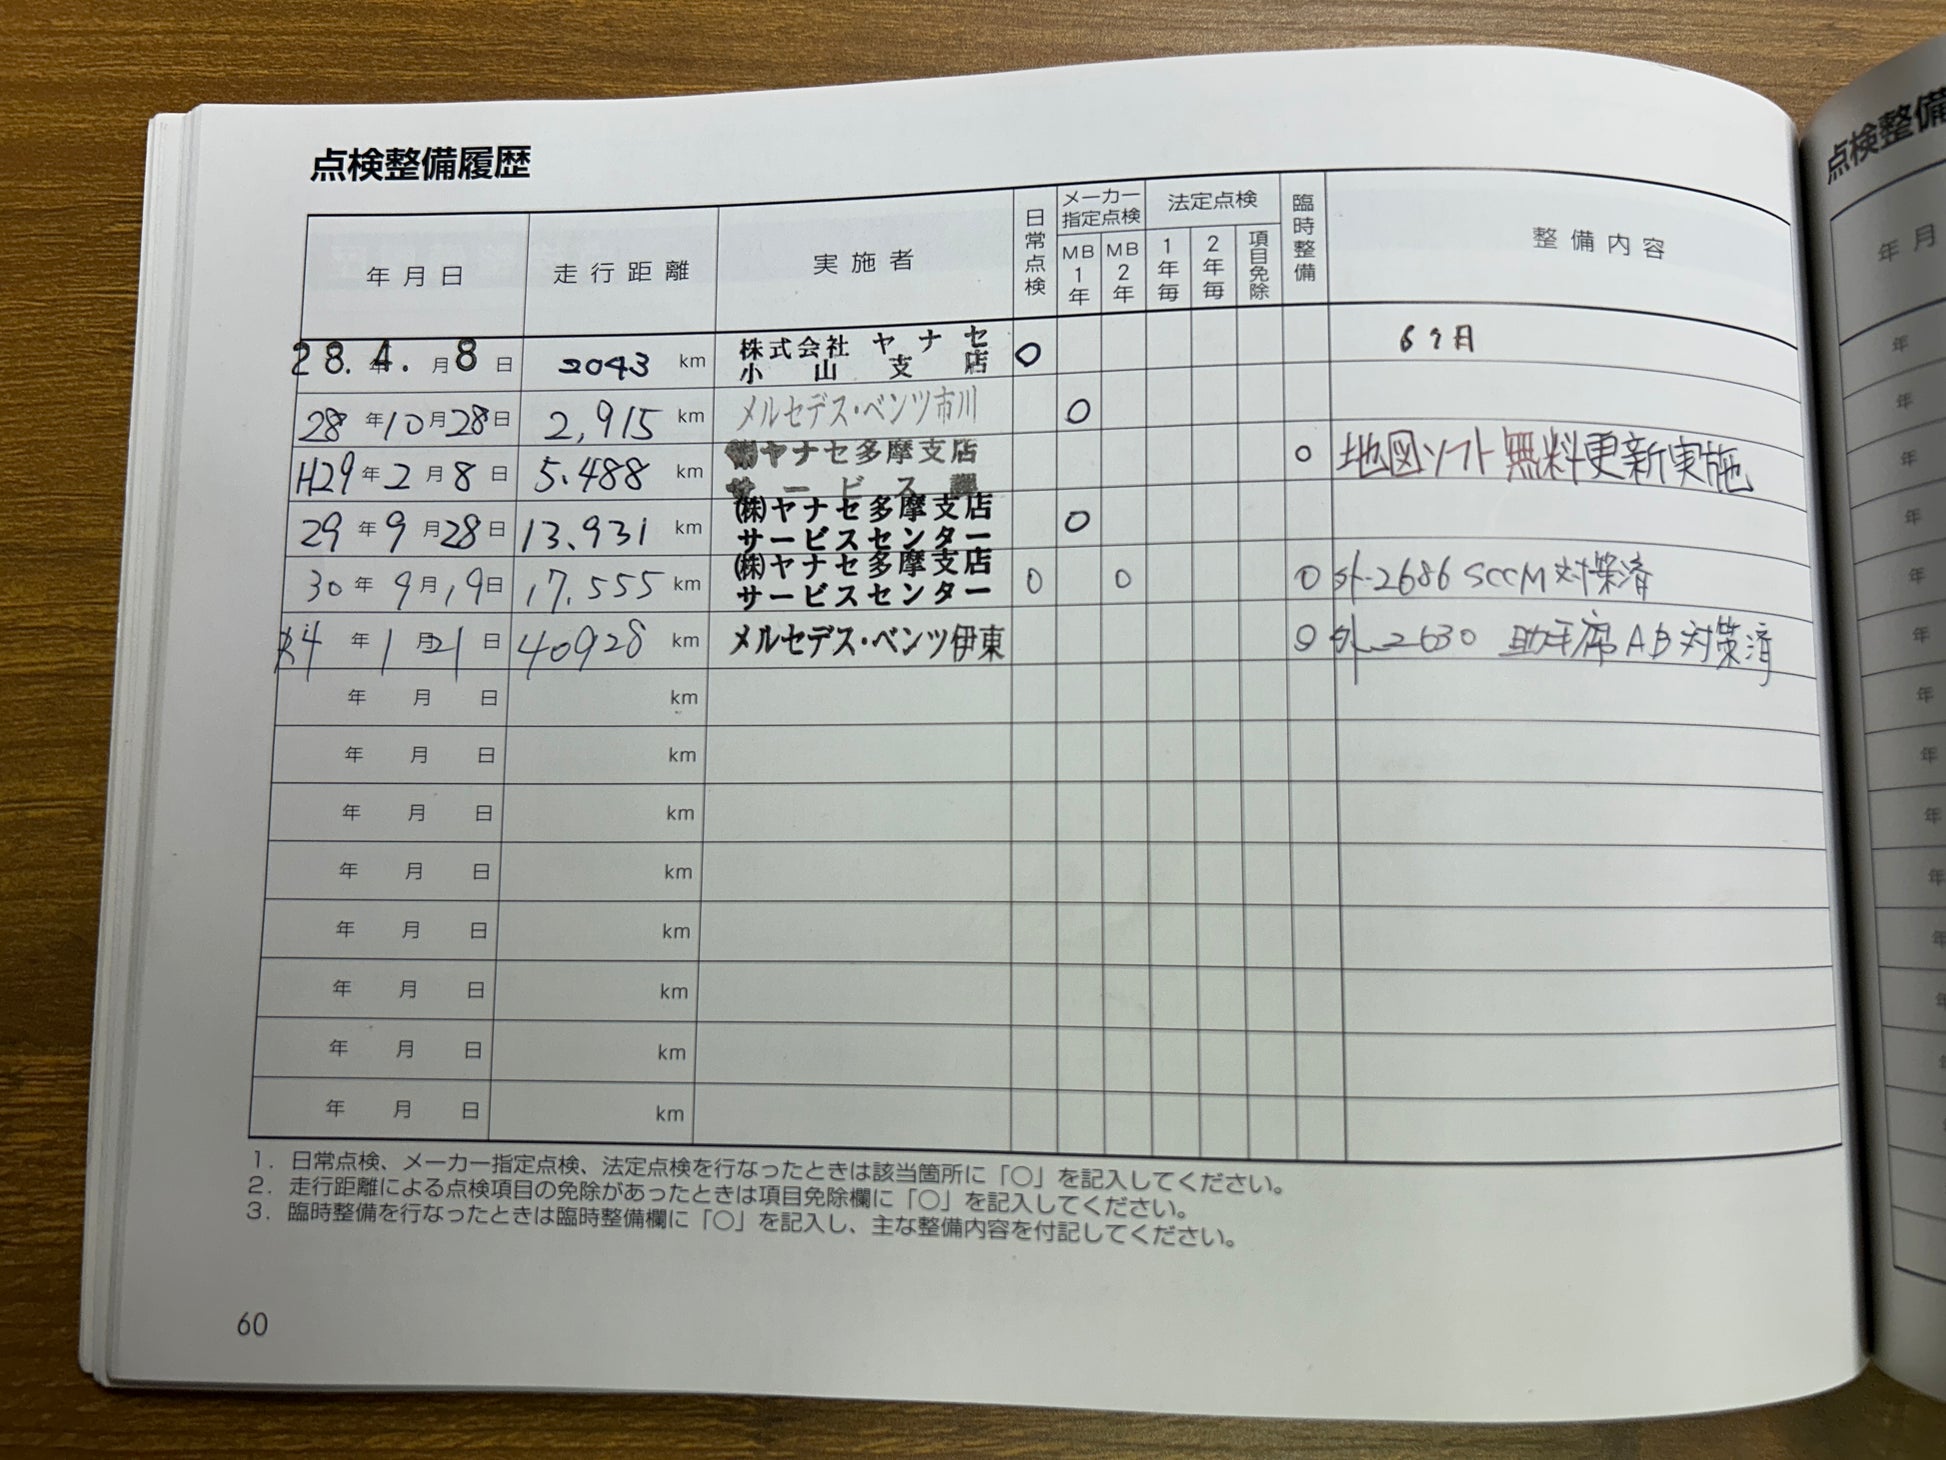 点検整備履歴
年月日 走行距離 実施者 日常点検 メーカー指定点検 MB1年 MB2年 法定点検 1年毎 2年毎 項目免除 臨時整備 整備内容
28.年4.月8日 2043 km 株式会社ヤナセ ○ 6ヶ月
小山支店
28年10月28日 2,915 km メルセデス・ベンツ市川 ○
H29年2月8日 5.488 km ㈱ヤナセ多摩支店 ○ 地図ソフト無料更新実施
サービス課
29年9月28日 13.931 km ㈱ヤナセ多摩支店 ○
サービスセンター
30年9月19日 17.555 km ㈱ヤナセ多摩支店 ○ ○ ○ 外-2686 SCCM対策済
サービスセンター
R4年1月21日 40928 km メルセデス・ベンツ伊東 ○ 外-2630 助手席AB対策済
年 月 日 km
年 月 日 km
年 月 日 km
年 月 日 km
年 月 日 km
年 月 日 km
年 月 日 km
年 月 日 km
1. 日常点検、メーカー指定点検、法定点検を行なったときは該当箇所に「○」を記入してください。
2. 走行距離による点検項目の免除があったときは項目免除欄に「○」を記入してください。
3. 臨時整備を行なったときは臨時整備欄に「○」を記入し、主な整備内容を付記してください。
60
点検整備
年月
年
年
年
年
年
年
年
年
年
年
年
年
年